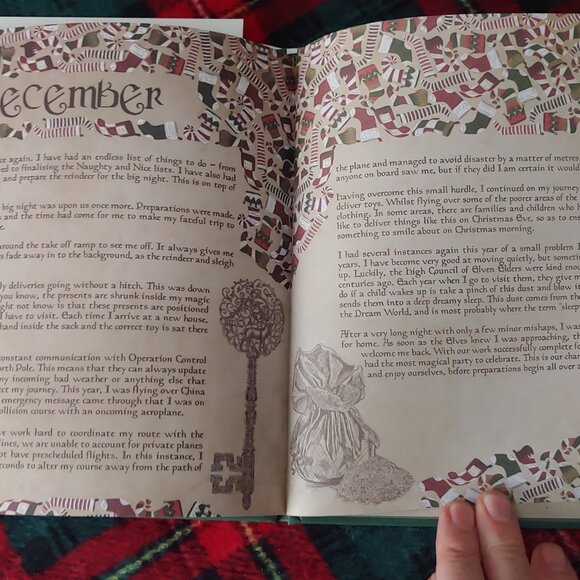 ECEMBER
ce again. I have had an endless list of things to do – from
ed to finalising the Naughty and Nice lists. I have also had
and prepare the reindeer for the big night. This is on top of
big night was upon us once more. Preparations were made,
and the time had come for me to make my fateful trip to
around the take off ramp to see me off. It always gives me
s fade away in to the background, as the reindeer and sleigh
deliveries going without a hitch. This was down
you know, the presents are shrunk inside my magic
ght not know is that these presents are positioned
I have to visit. Each time I arrive at a new house,
hand inside the sack and the correct toy is sat there
constant communication with Operation Control
rth Pole. This means that they can always update
ny incoming bad weather or anything else that
ect my journey. This year, I was flying over China
emergency message came through that I was on
ollision course with an oncoming aeroplane.
e work hard to coordinate my route with the
lines, we are unable to account for private planes
ot have prescheduled flights. In this instance, I
econds to alter my course away from the path of
the plane and managed to avoid disaster by a matter of metres.
anyone on board saw me, but if they did I am certain it would
having overcome this small hurdle, I continued on my journey
deliver toys. Whilst flying over some of the poorer areas of the
clothing. In some areas, there are families and children who h
like to deliver things like this on Christmas Eve, so as to en
something to smile about on Christmas morning.
I had several instances again this year of a small problem I
years, I have become very good at moving quietly, but someti
up. Luckily, the high Council of Elven Elders were kind enou
centuries ago. Each year when I go to visit them, they give m
do if a child wakes up is take a pinch of this dust and blow it
sends them into a deep dreamy sleep. This dust comes from th
the Dream World, and is most probably where the term "sleep
After a very long night with only a few minor mishaps, I wa
for home. As soon as the Elves knew I was approaching, th
welcome me back. With our work successfully complete fo
had the most magical party to celebrate. This is our chan
and enjoy ourselves, before preparations begin all over a